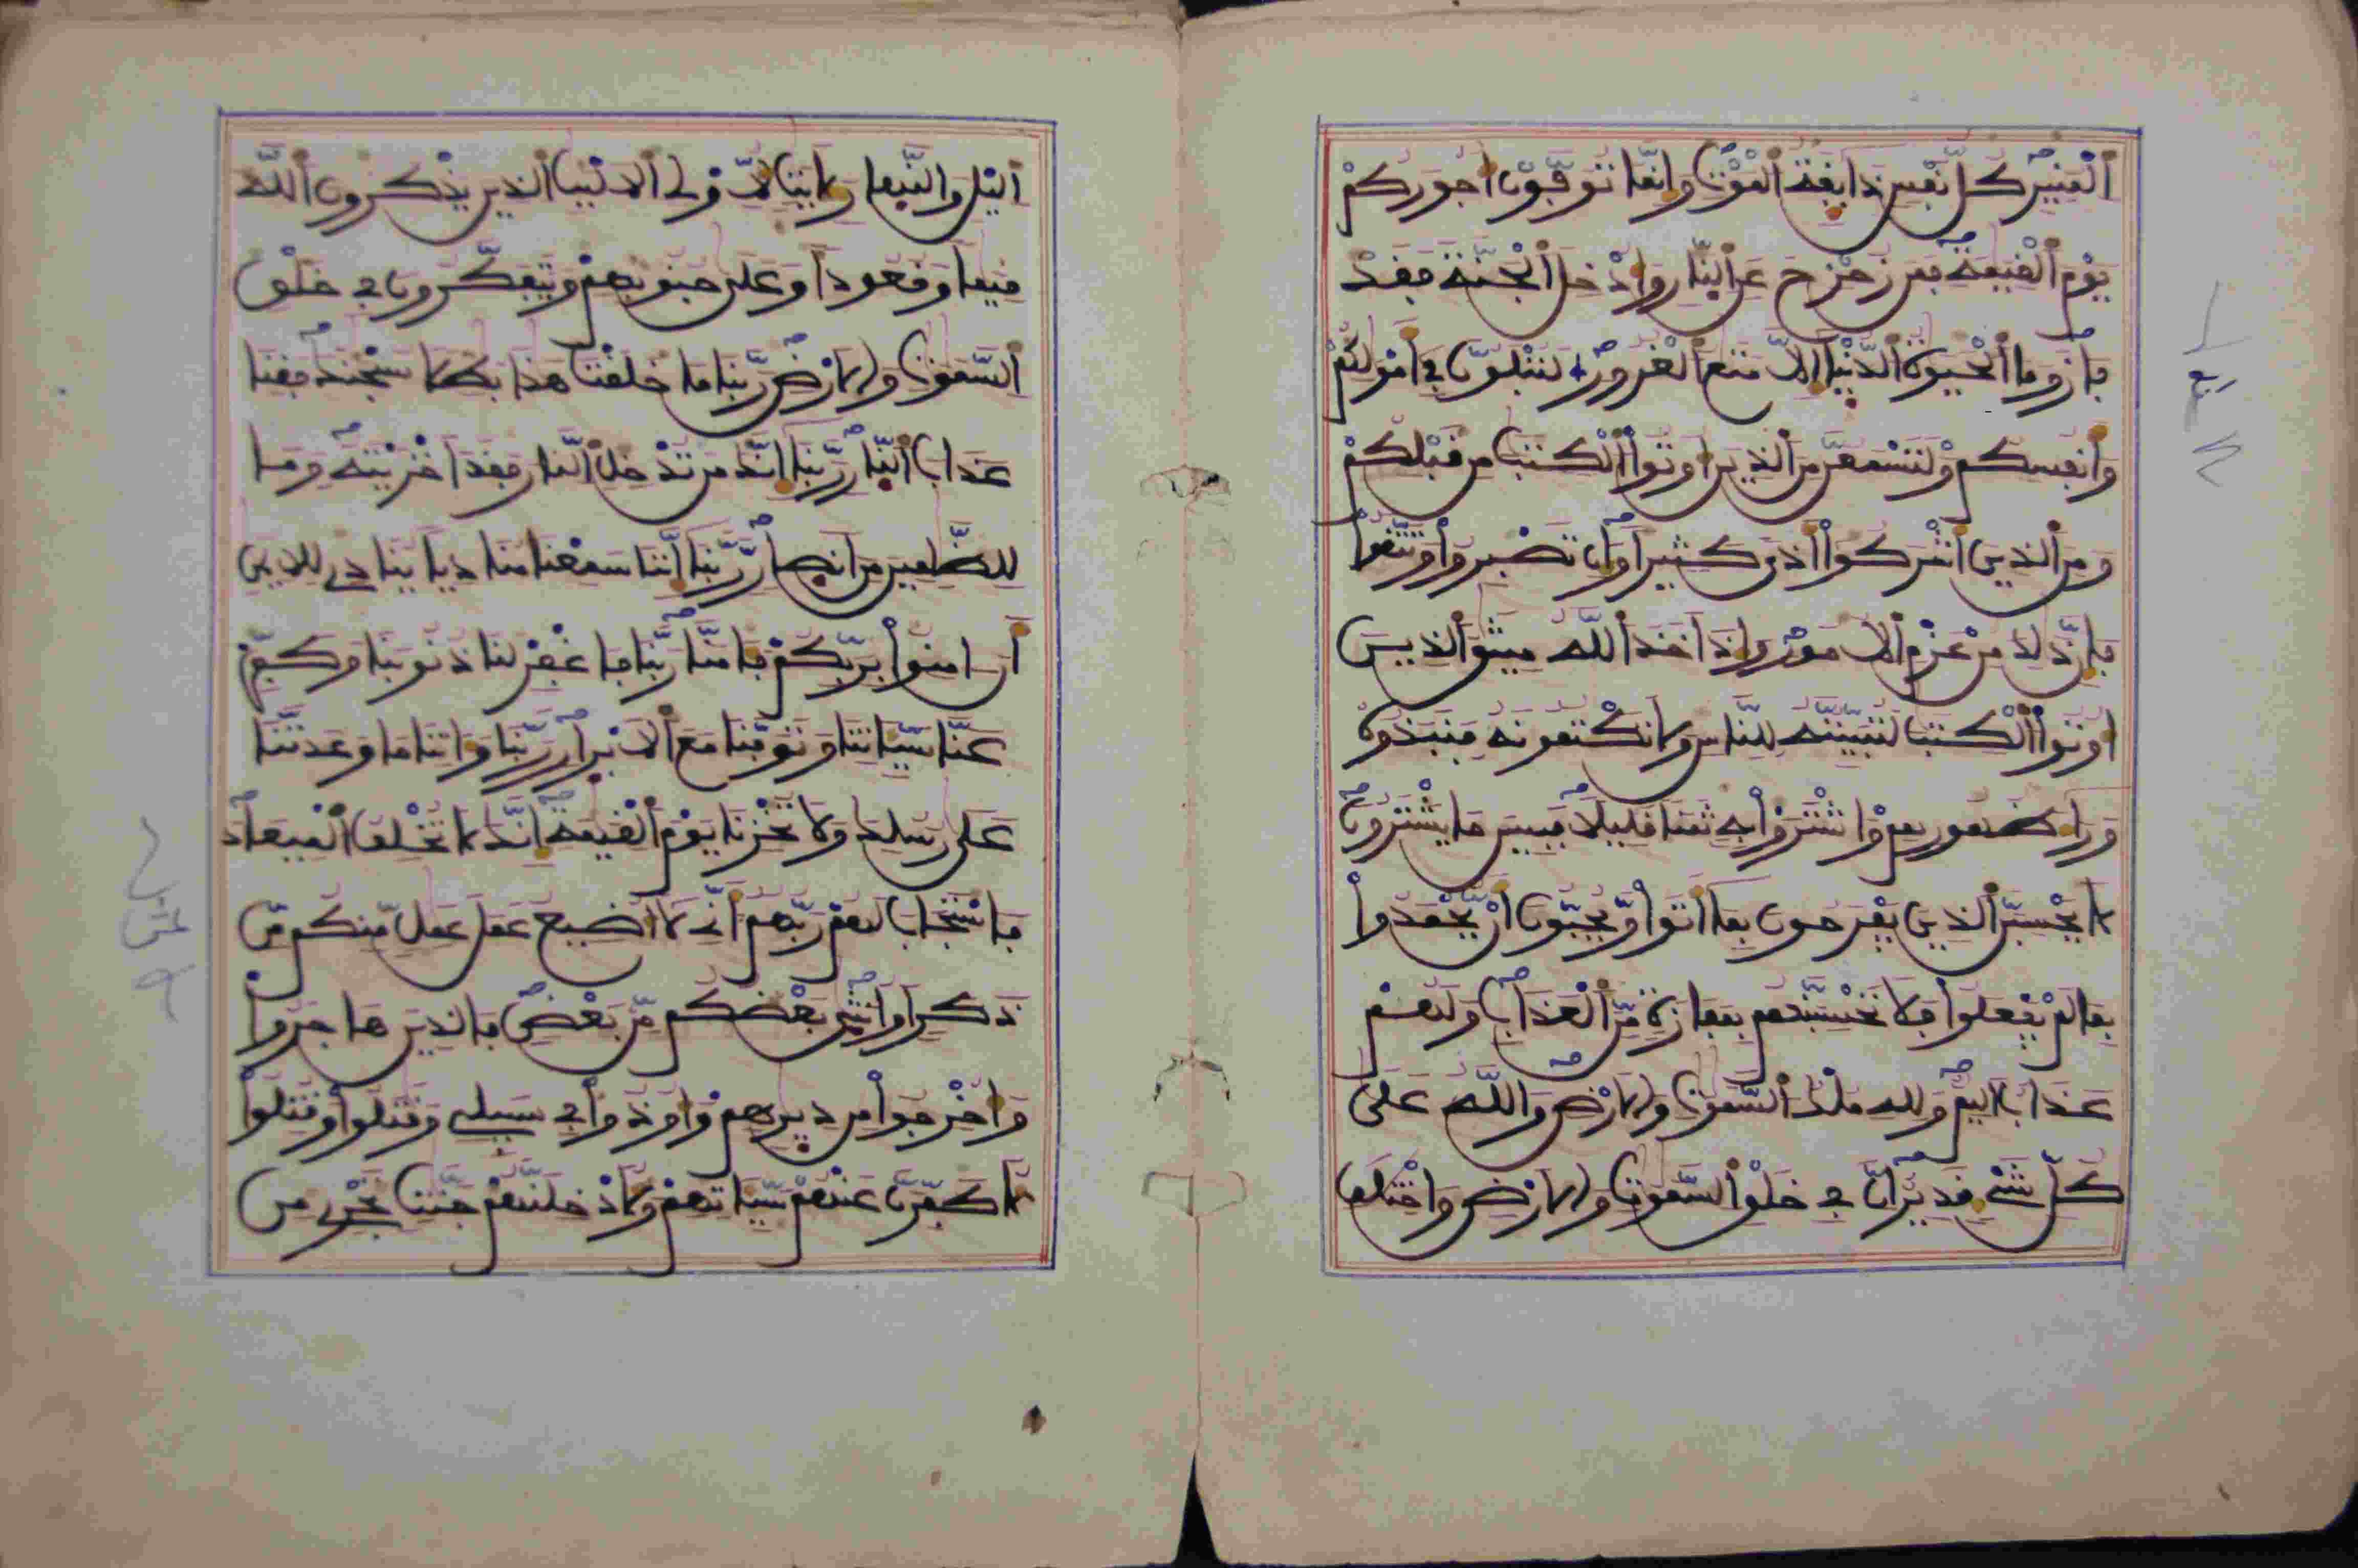 ٱلْمُنِيرِ كُلُّ نَفْسٍ ذَآئِقَةُ ٱلْمَوْتِ وَإِنَّمَا تُوَفَّوْنَ أُجُورَكُمْ
يَوْمَ ٱلْقِيَٰمَةِ فَمَن زُحْزِحَ عَنِ ٱلنَّارِ وَأُدْخِلَ ٱلْجَنَّةَ فَقَدْ
فَازَ وَمَا ٱلْحَيَوٰةُ ٱلدُّنْيَا إِلَّا مَتَٰعُ ٱلْغُرُورِ لَتُبْلَوُنَّ فِے أَمْوَٰلِكُمْ
وَأَنفُسِكُمْ وَلَتَسْمَعُنَّ مِنَ ٱلذِينَ أُوتُوا ٱلْكِتَٰبَ مِن قَبْلِكُمْ
وَمِنَ ٱلذِينَ أَشْرَكُوا أَذًى كَثِيرًا وَإِن تَصْبِرُوا وَتَتَّقُوا
فَإِنَّ ذَٰلِكَ مِنْ عَزْمِ ٱلْأُمُورِ وَإِذْ أَخَذَ ٱللَّهُ مِيثَٰقَ ٱلذِينَ
أُوتُوا ٱلْكِتَٰبَ لَتُبَيِّنُنَّهُ لِلنَّاسِ وَلَا تَكْتُمُونَهُ فَنَبَذُوهُ
وَرَآءَ ظُهُورِهِمْ وَٱشْتَرَوْا بِهِ ثَمَنًا قَلِيلًا فَبِيسَ مَا يَشْتَرُونَ
لَا يَحْسِبَنَّ ٱلذِينَ يَفْرَحُونَ بِمَآ أَتَوا وَّيُحِبُّونَ أَنْ يُّحْمَدُوا
بِمَا لَمْ يَفْعَلُوا فَلَا تَحْسِبَنَّهُم بِمَفَازَةٍ مِّنَ ٱلْعَذَابِ وَلَهُمْ
عَذَابٌ أَلِيمٌ وَلِلهِ مُلْكُ ٱلسَّمَٰوَٰتِ وَٱلْأَرْضِ وَٱللَّهُ عَلَىٰ
كُلِّ شَيْءٍ قَدِيرٌ إِنَّ فِے خَلْقِ ٱلسَّمَٰوَٰتِ وَٱلْأَرْضِ وَٱخْتِلَٰفِ
ٱليْلِ وَٱلنَّهَارِ لَأٓيَٰتٍ لِّأُوْلِے ٱلْأَلْبَٰبِ ٱلذِينَ يَذْكُرُونَ ٱللَّهَ
قِيَٰمًا وَقُعُودًا وَعَلَىٰ جُنُوبِهِمْ وَيَتَفَكَّرُونَ فِے خَلْقِ
ٱلسَّمَٰوَٰتِ وَٱلْأَرْضِ رَبَّنَا مَا خَلَقْتَ هَٰذَا بَٰطِلًا سُبْحَٰنَكَ فَقِنَا
عَذَابَ ٱلنَّارِ رَبَّنَآ إِنَّكَ مَن تُدْخِلِ ٱلنَّارَ فَقَدَ أَخْزَيْتَهُ وَمَا
لِلظَّٰلِمِينَ مِنْ أَنصَارٍ رَّبَّنَآ إِنَّنَا سَمِعْنَا مُنَادِيًا يُنَادِے لِلْإِيمَٰنِ
أَنْ ءَامِنُوا بِرَبِّكُمْ فَـَٔامَنَّا رَبَّنَا فَٱغْفِرْ لَنَا ذُنُوبَنَا وَكَفِّرْ
عَنَّا سَيِّـَٔاتِنَا وَتَوَفَّنَا مَعَ ٱلْأَبْرَارِ رَبَّنَا وَءَاتِنَا مَا وَعَدتَّنَا
عَلَىٰ رُسُلِكَ وَلَا تُخْزِنَا يَوْمَ ٱلْقِيَٰمَةِ إِنَّكَ لَا تُخْلِفُ ٱلْمِيعَادَ
فَٱسْتَجَابَ لَهُمْ رَبُّهُمْ أَنِّے لَآ أُضِيعُ عَمَلَ عَٰمِلٍ مِّنكُم مِّن
ذَكَرٍ أَوْ أُنثَىٰ بَعْضُكُم مِّن بَعْضٍ فَٱلذِينَ هَاجَرُوا
وَأُخْرِجُوا مِن دِيَٰرِهِمْ وَأُوذُوا فِے سَبِيلِے وَقَٰتَلُوا وَقُتِلُوا
لَأُكَفِّرَنَّ عَنْهُمْ سَيِّـَٔاتِهِمْ وَلَأُدْخِلَنَّهُمْ جَنَّٰتٍ تَجْرِے مِن